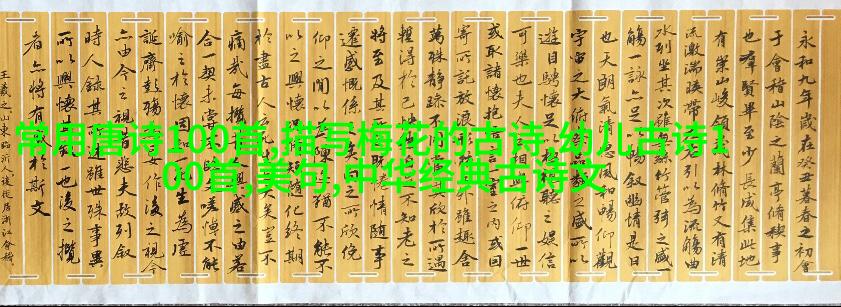 常用唐诗100首,描写梅花的古诗,幼儿古诗1
00首,美句,中华经典古诗文
永和九年歲在癸丑暮春之初會
于會稽山陰之蘭亭脩稧事
也群賢畢至少長咸集此地
有崇山峻領茂林脩竹又有清
流激湍暎帶左右引以為流觴曲
水列坐其次雖無絲竹管弦之盛一
觴一詠亦足以暢敘幽情是日
也天朗氣清惠風和暢仰觀
宇宙之大俯察品類之盛所以
遊目騁懷足以極視聽之娛信
可樂也夫人之相與俯仰一世
或取諸懷抱悟言一室之内或因
寄所託放浪形骸之外雖趣舍
萬殊靜躁不同當其欣於所遇
暫得於己快然自足不知老之
將至及其所之既惓情隨事
遷感慨係之矣向之所欣俛
仰之間以為陳迹猶不能不
以之興懷況脩短隨化終期
於盡古人云死生亦大矣豈不
痛哉每攬昔人興感之由若
合一契未嘗不臨文嗟悼不能
喻之於懷固知一死生為虛
誕齊彭殤為妄作後之視今
亦由今之視昔悲夫故列敘
時人錄其所述雖世殊事異
所以興懷其致一也後之攬
者亦將有感於斯文
王羲之山東臨沂人後徙居浙江會稽